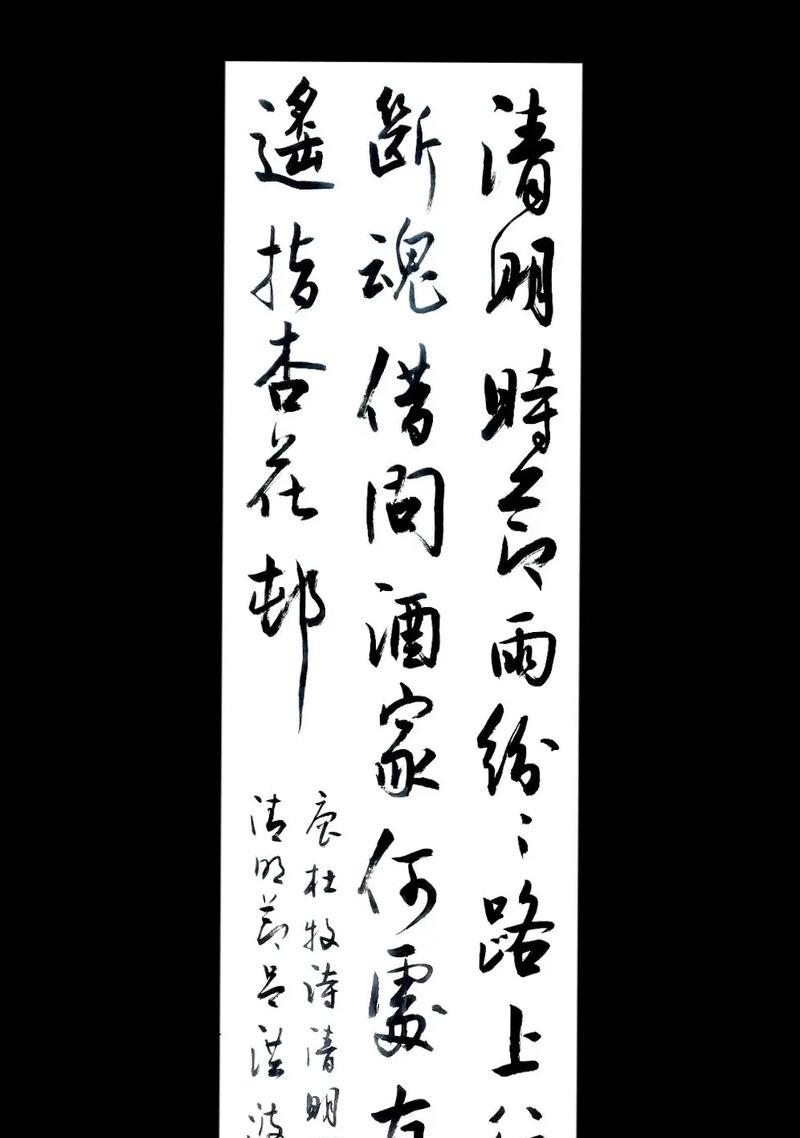 清明時節雨紛〻路上行
斷魂借問酒家何處有
遙指杏花邨
唐杜牧詩清明
清明節呂洪波